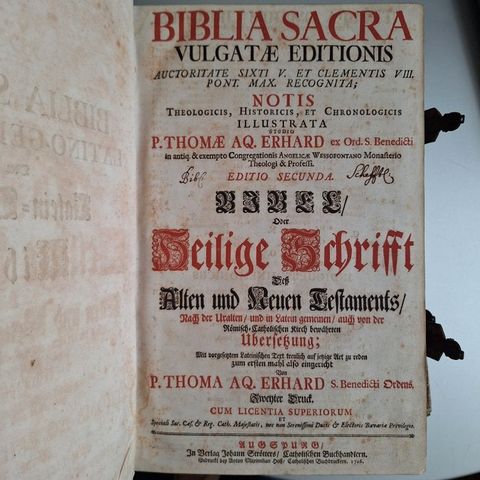 BIBLIA SACRA
VULGATÆ EDITIONIS
AUCTORITATE SIXTI V. ET CLEMENTIS VIII.
PONT. MAX. RECOGNITA;
NOTIS
THEOLOGICIS, HISTORICIS, ET CHRONOLOGICIS
ILLUSTRATA
STUDIO
P. THOMÆ AQ. ERHARD ex Ord. S. Benedicti
in antiq. & exempto Congregationis ANGELICÆ WESSOFONTANO Monasterio
Theologi & Professi.
EDITIO SECUNDA.
BIBEL/
Oder
Heilige Schrifft
Deß
Alten und Neuen Testaments/
Nach der Uralten/ und in Latein gemeinen/ auch von der
Römisch-Catholischen Kirch bewährten
Übersetzung;
Mit vorgesetztem Lateinischen Text treulich auf jetzige Art zu reden
zum ersten mahl also eingericht
Von
P. THOMA AQ. ERHARD S. Benedicti Ordens.
Zweyter Druck.
CUM LICENTIA SUPERIORUM
ET
Speciali Sac. Cæs. & Reg. Cath. Majestatis, nec non Serenissimi Ducis & Electoris Bavariæ Privilegio.
AUGSPURG/
In Verlag Johann Strötters/ Catholischen Buchhandlern.
Gedruckt bey Anton Maximilian Catholischen Buchdruckern.